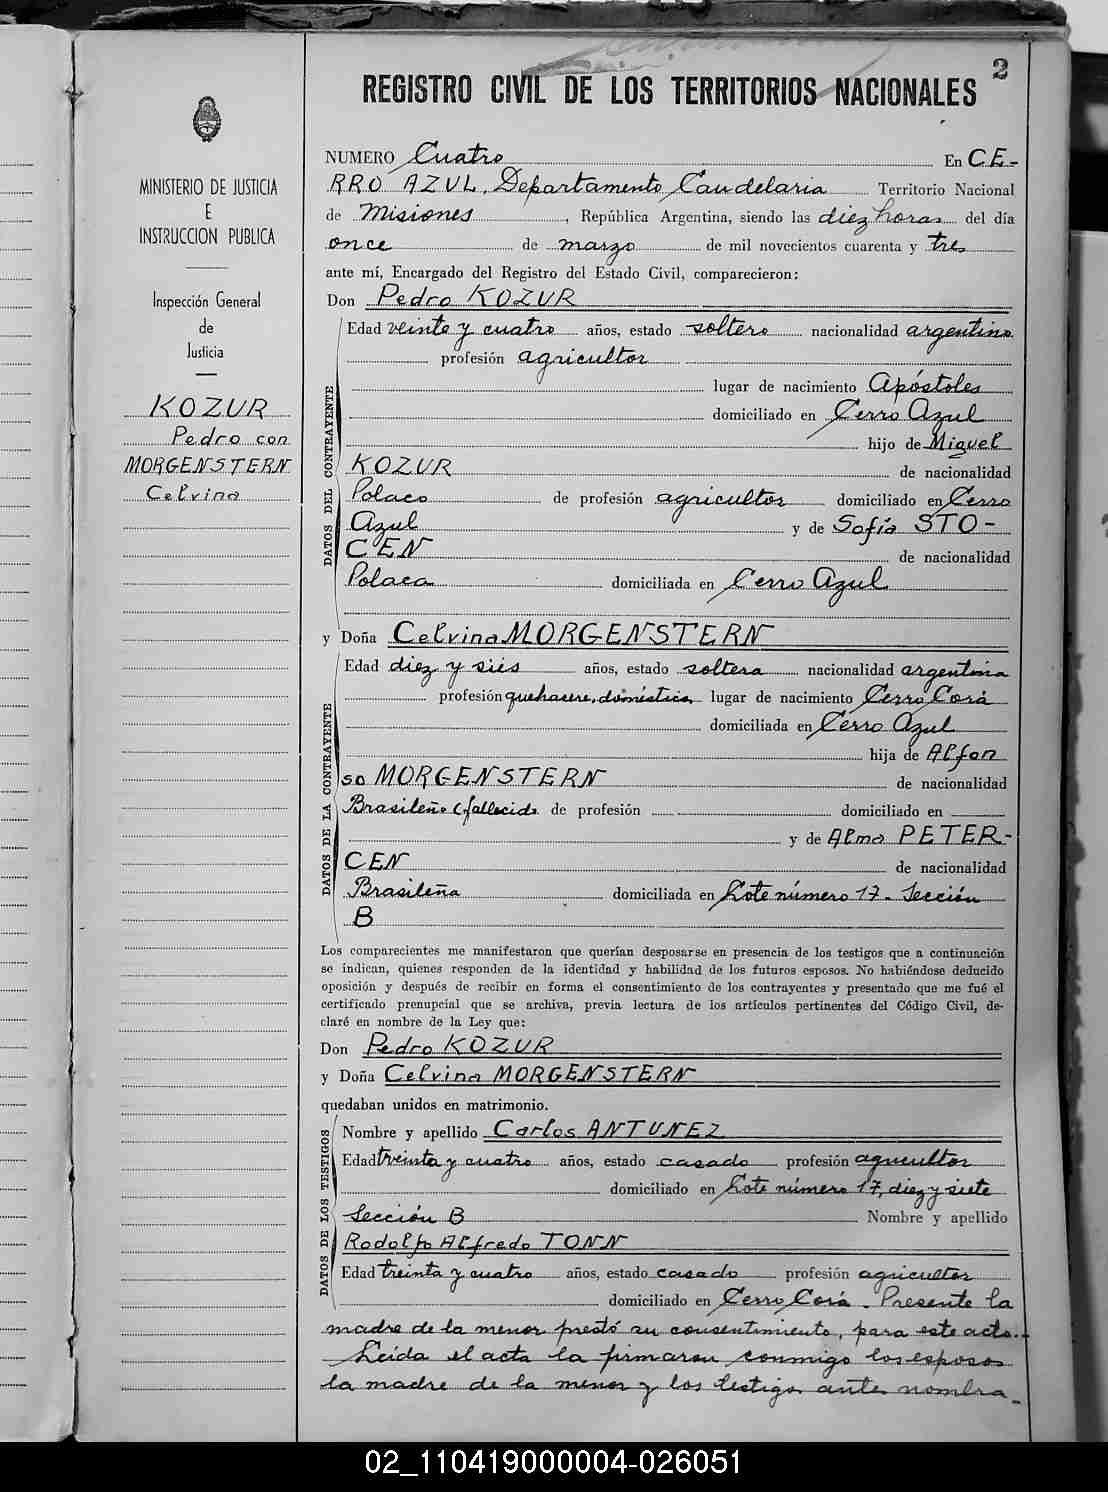 2
REGISTRO CIVIL DE LOS TERRITORIOS NACIONALES
MINISTERIO DE JUSTICIA
E
INSTRUCCION PUBLICA
Inspección General
de
Justicia
KOZUR
Pedro con
MORGENSTERN
Celvina
NUMERO Cuatro En CE-
RRO AZUL, Departamento Candelaria Territorio Nacional
de Misiones, República Argentina, siendo las diez horas del día
once de marzo de mil novecientos cuarenta y tres
ante mí, Encargado del Registro del Estado Civil, comparecieron:
Don Pedro KOZUR
DATOS DEL CONTRAYENTE
Edad veinte y cuatro años, estado soltero nacionalidad argentino
profesión agricultor
lugar de nacimiento Apóstoles
domiciliado en Cerro Azul
hijo de Miguel
KOZUR de nacionalidad
Polaco de profesión agricultor domiciliado en Cerro
Azul y de Sofía STO-
CEN de nacionalidad
Polaca domiciliada en Cerro Azul
y Doña Celvina MORGENSTERN
DATOS DE LA CONTRAYENTE
Edad diez y siés años, estado soltera nacionalidad argentina
profesión quehacere, doméstica, lugar de nacimiento Cerro Corá
domiciliada en Cerro Azul
hija de Alfon
so MORGENSTERN de nacionalidad
Brasileño (fallecido de profesión domiciliado en
y de Alma PETER-
CEN de nacionalidad
Brasileña domiciliada en Lote número 17 - Sección
B
Los comparecientes me manifestaron que querían desposarse en presencia de los testigos que a continuación
se indican, quienes responden de la identidad y habilidad de los futuros esposos. No habiéndose deducido
oposición y después de recibir en forma el consentimiento de los contrayentes y presentado que me fué el
certificado prenupcial que se archiva, previa lectura de los artículos pertinentes del Código Civil, de-
claré en nombre de la Ley que:
Don Pedro KOZUR
y Doña Celvina MORGENSTERN
quedaban unidos en matrimonio.
DATOS DE LOS TESTIGOS
Nombre y apellido Carlos ANTUNEZ
Edad treinta y cuatro años, estado casado profesión agricultor
domiciliado en Lote número 17, diez y siete
Sección B Nombre y apellido
Rodolfo Alfredo TONN
Edad treinta y cuatro años, estado casado profesión agricultor
domiciliado en Cerro Corá. Presente la
madre de la menor prestó su consentimiento, para este acto.-
Leída el acta la firmaron conmigo los esposos
la madre de la menor y los testigos ante nombra-
02_110419000004-026051